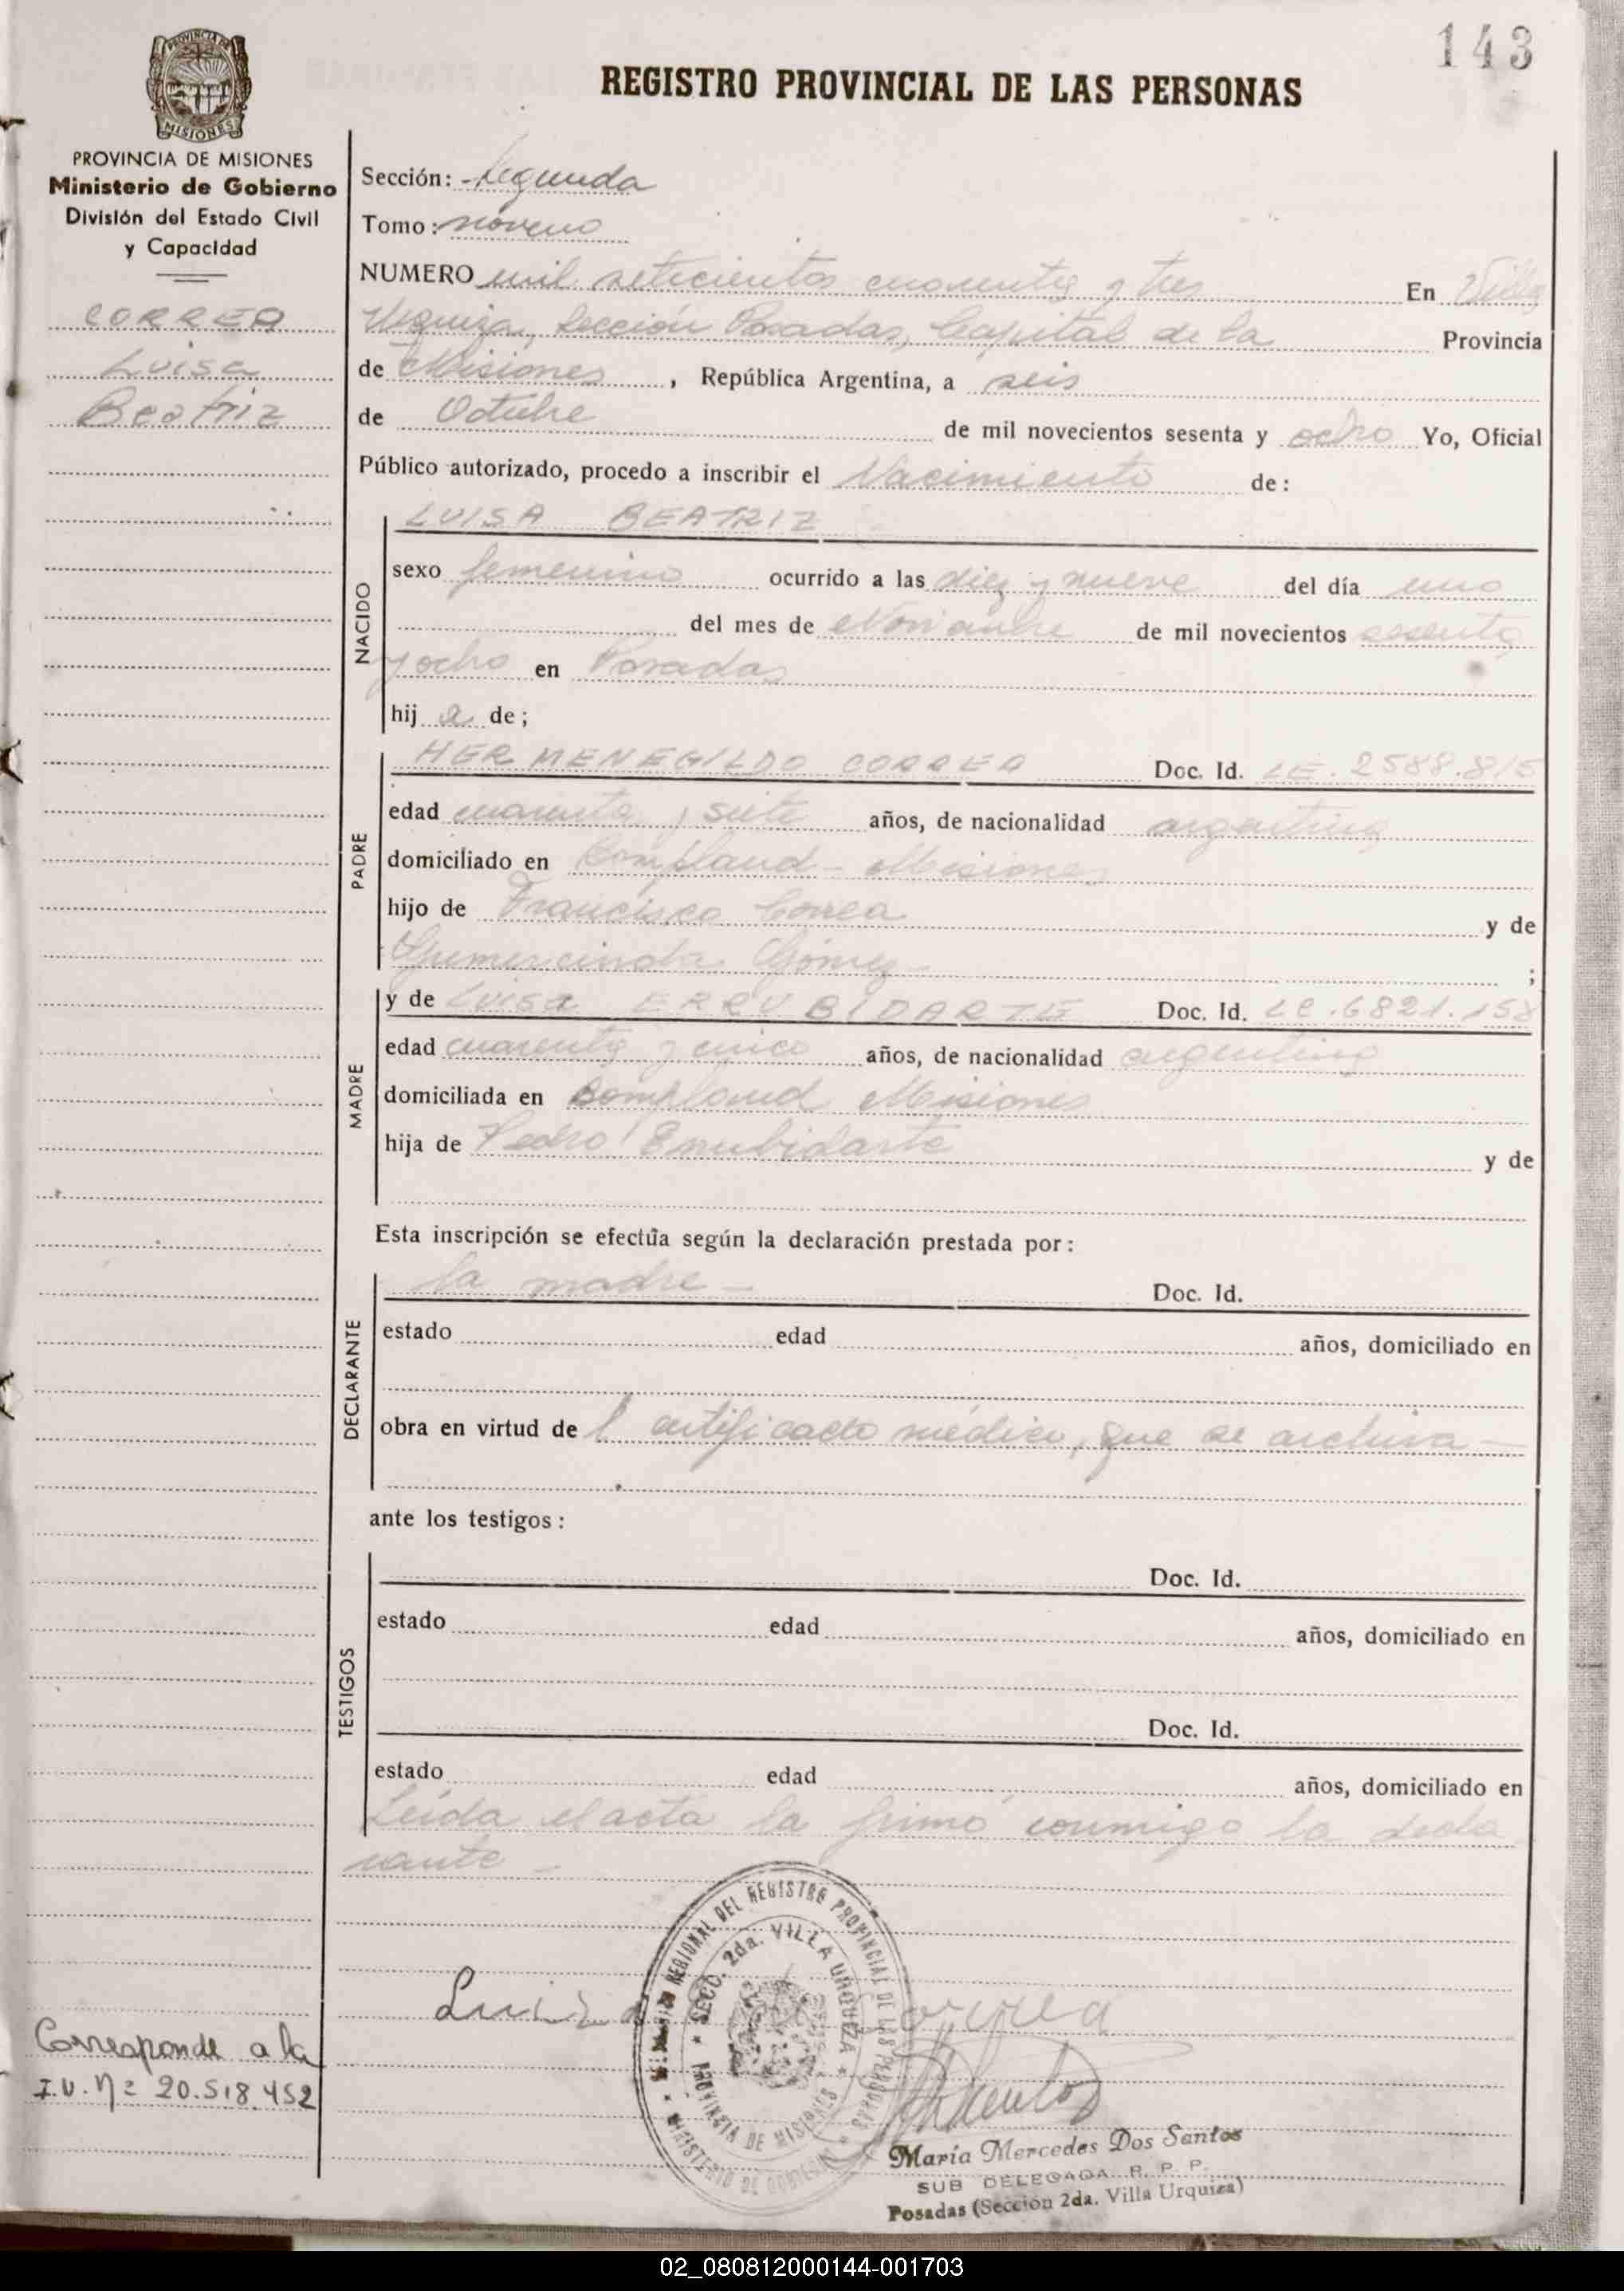 143
REGISTRO PROVINCIAL DE LAS PERSONAS
PROVINCIA DE
MISIONES
PROVINCIA DE MISIONES
Ministerio de Gobierno
División del Estado Civil
y Capacidad
CORREA
Luisa
Beatriz
Sección: Segunda
Tomo: noveno
NUMERO mil setecientos cuarenta y tres En Villa
Urquiza, Sección Posadas, Capital de la Provincia
de Misiones, República Argentina, a seis
de Octubre de mil novecientos sesenta y ocho Yo, Oficial
Público autorizado, procedo a inscribir el Nacimiento de:
NACIDO
LUISA BEATRIZ
sexo femenino ocurrido a las diez y nueve del día uno
del mes de de mil novecientos sesenta
y ocho en Posadas
hij a de;
PADRE
HERMENEGILDO CORREA Doc. Id. LE. 2588.815
edad cuarenta y siete años, de nacionalidad argentina
domiciliado en Bompland - Misiones
hijo de Francisco Correa y de
Gumercinda Gómez ;
MADRE
y de Luisa ERRUBIDARTE Doc. Id. LC. 6821.158
edad cuarenta y cinco años, de nacionalidad argentina
domiciliada en Bompland Misiones
hija de Pedro Errubidarte y de
Esta inscripción se efectúa según la declaración prestada por:
DECLARANTE
la madre - Doc. Id.
estado edad años, domiciliado en
obra en virtud de l certificado médico, que se archiva -
ante los testigos:
TESTIGOS
Doc. Id.
estado edad años, domiciliado en
Doc. Id.
estado edad años, domiciliado en
Leída el acta la firmó conmigo la decla
rante -
REGIONAL DEL REGISTRO PROVINCIAL DE LAS PERSONAS
SECC. 2da. VILLA URQUIZA
PROVINCIA DE MISIONES
MINISTERIO DE GOBIERNO
Corresponde a la
I.U. Nº 20.518.452
María Mercedes Dos Santos
SUB DELEGADA R. P. P.
Posadas (Sección 2da. Villa Urquiza)
02_080812000144-001703